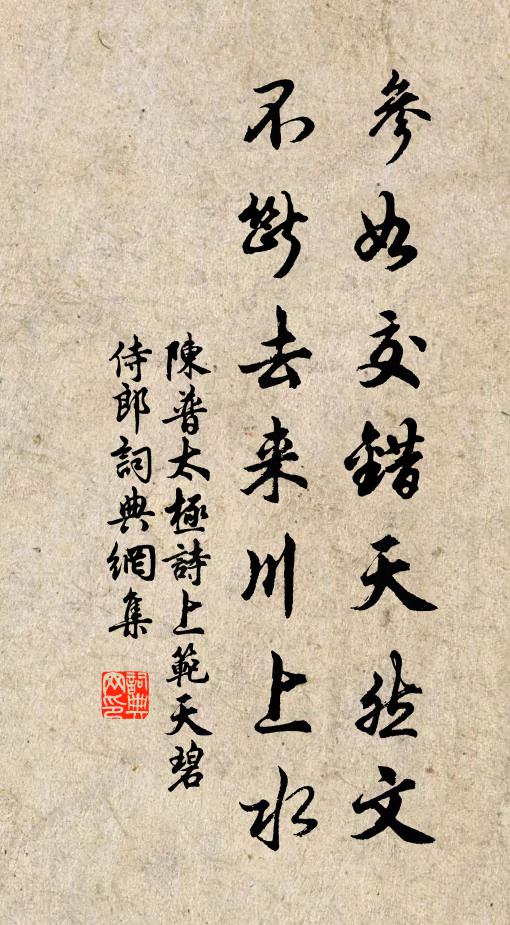 參如交錯天然文
不斷去来川上水
陳普太極詩上範天碧
侍郎詞典網集
詞典
网印